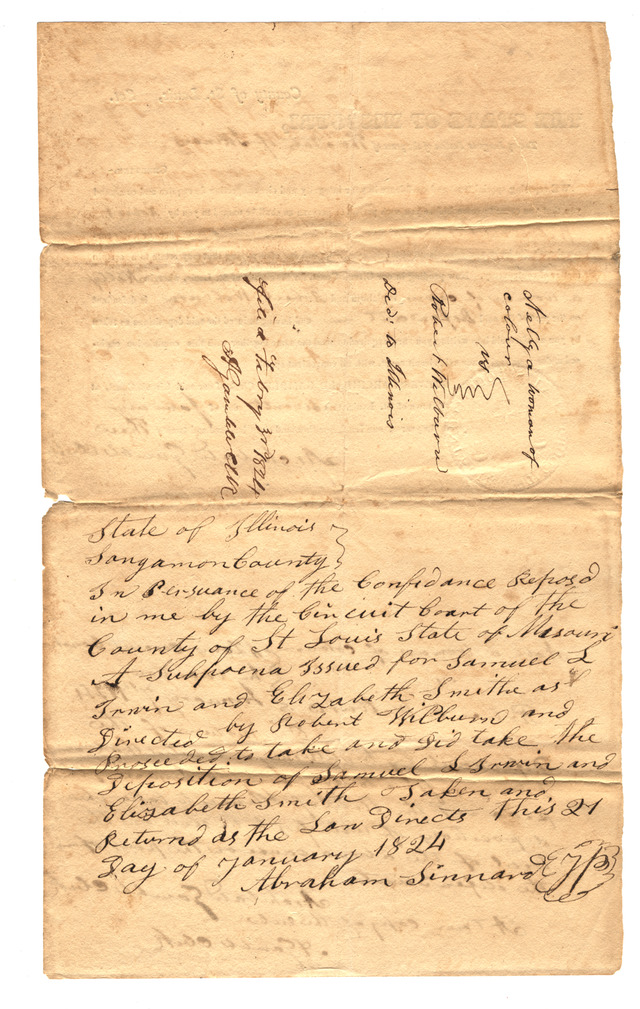 Nelly a woman of
colour
vs
Robert Wilburn
Ded: to Illinois
Filed Febry 3rd 1824
A Gamble Clk
State of Illinois
Sangamon County
In Persuance of the Confidance Reposd
in me by the Circuit Court of the
County of St Louis State of Missouri
A Subpoena Issued for Samuel L
Irwin and Elizabeth Smith as
Directed by Robert Wilburn and
Proseeded to take and Did take the
Diposition of Samuel L Irwin and
Elizabeth Smith Taken and
Returnd as the Law Directs This 21
Day of January 1824
Abraham Sinnard JP